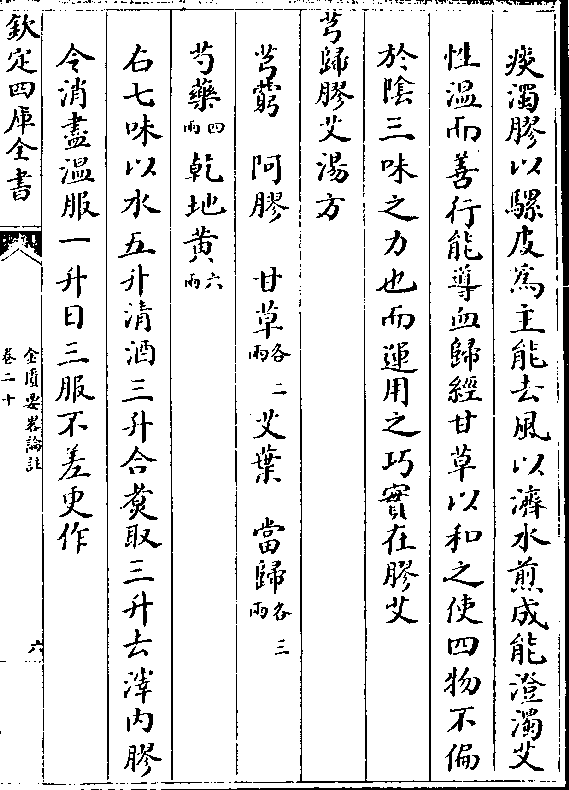 痰濁膠以騾皮為主能去風以濟水煎成能澄濁艾
性溫而善行能導血歸經甘草以和之使四物不偏
於陰三味之力也而運用之巧實在膠艾
芎歸膠艾湯方
芎藭 阿膠 甘草各二兩 艾葉 當歸各三兩
芍藥四兩 乾地黄六兩
右七味以水五升清酒三升合煑取三升去滓内膠
令消盡溫服一升日三服不差更作
欽定四庫全書
金匱要畧論註
卷二十
六